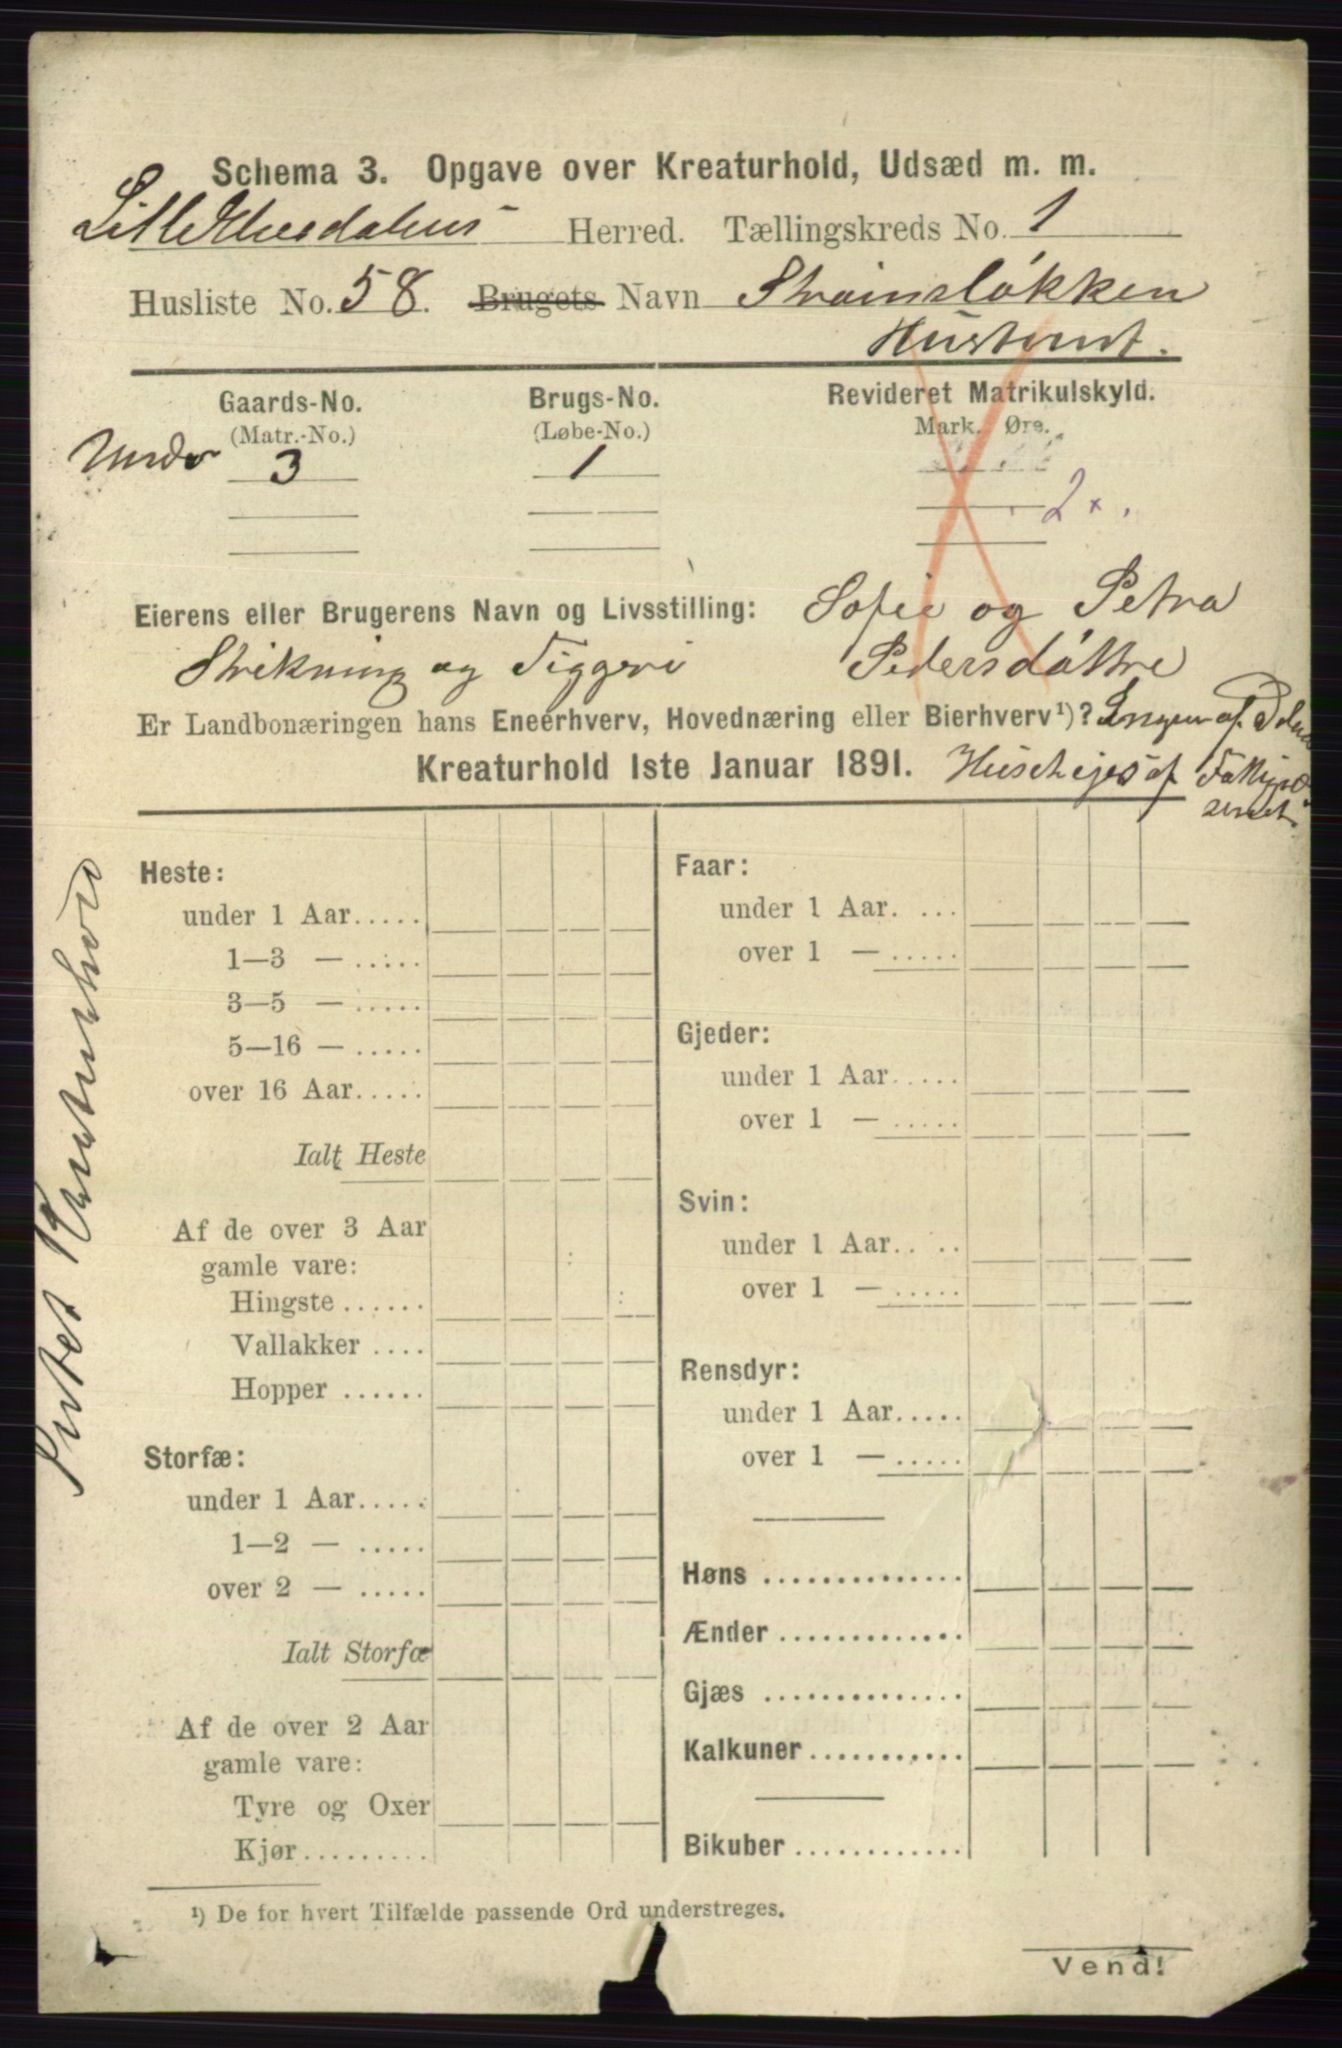 Schema 3. Opgave over Kreaturhold, Udsæd m. m.
Lille Elvedalens Herred. Tællingskreds No. 1
Husliste No. 58. Brugets Navn Strömsløkken
Hustomt.
Gaards-No. Brugs-No. Revideret Matrikulskyld.
(Matr.-No.) (Løbe-No.) Mark. Øre.
Under 3 1
2
Eierens eller Brugerens Navn og Livsstilling: Sofie og Petra
Strikning og Tiggeri Pedersdøttre
Er Landbonæringen hans Eneerhverv, Hovednæring eller Bierhverv¹)? Ingen af Delene
Kreaturhold 1ste Januar 1891. Huset ejes af Fattigvæ-
senet.
Intet Kreaturhold
Heste:
under 1 Aar.....
1—3 — .....
3—5 — .....
5—16 — .....
over 16 Aar.....
Ialt Heste
Af de over 3 Aar
gamle vare:
Hingste ......
Vallakker ....
Hopper ......
Storfæ:
under 1 Aar.....
1—2 — .....
over 2 — .....
Ialt Storfæ
Af de over 2 Aar
gamle vare:
Tyre og Oxer
Kjør.........
Faar:
under 1 Aar. ...
over 1 — .....
Gjeder:
under 1 Aar.....
over 1 — .....
Svin:
under 1 Aar.. ..
over 1 — .....
Rensdyr:
under 1 Aar.....
over 1 — .....
Høns ..............
Ænder .............
Gjæs ..............
Kalkuner...........
Bikuber ............
¹) De for hvert Tilfælde passende Ord understreges.
Vend!